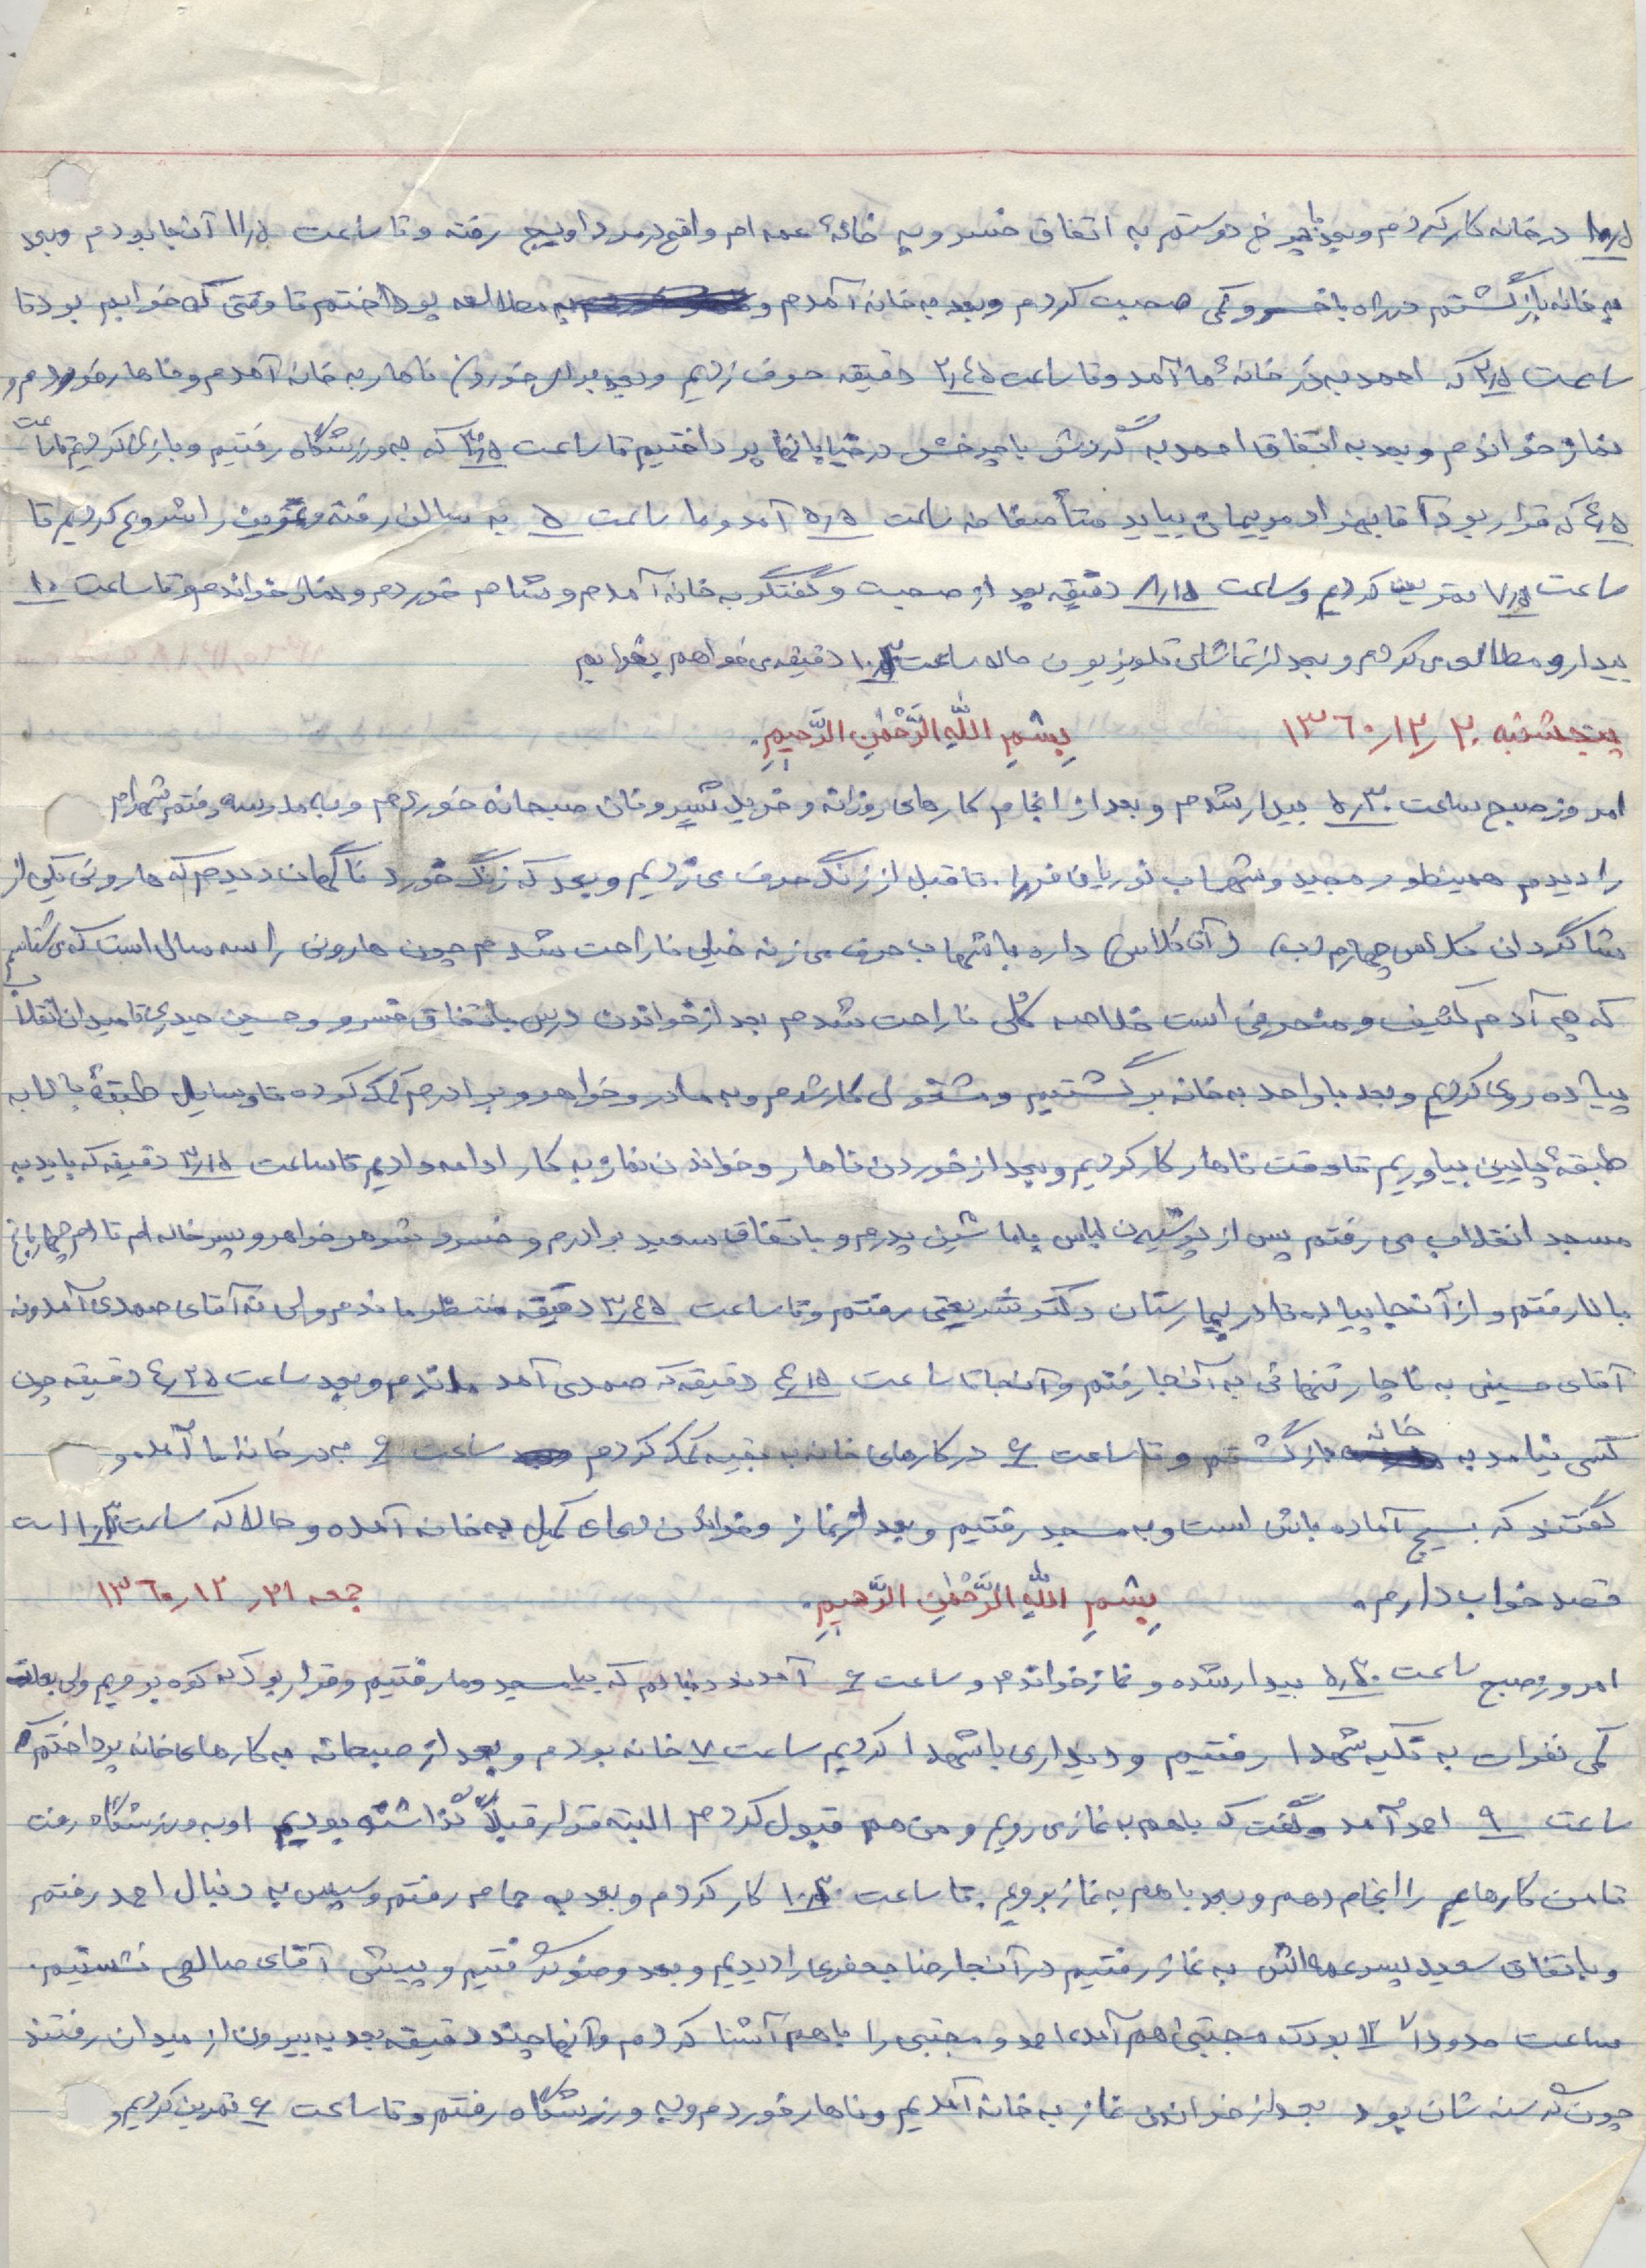 ۱۰/۵ در خانه کار کردم و بعد با چرخ دوستم به اتفاق خسرو به خانهٔ عمه ام واقع در مرداویج رفته و تا ساعت ۱۱/۵ آنجا بودم وبعد
به خانه بازگشتم در راه با خسرو کمی صحبت کردم وبعد به خانه آمدم و به مطالعه پرداختم تا وقتی که خوابم بود تا
ساعت ۲/۵ که احمد به در خانهٔ ما آمد و تا ساعت ۲/۴۵ دقیقه حرف زدیم وبعد برای خوردن ناهار به خانه آمدم و ناهار خوردم و
نماز خواندم و بعد به اتفاق احمد به گردش با چرخش در خیابانها پرداختیم تا ساعت ۳/۵ که به ورزشگاه رفتیم و بازی کردیم تا ساعت
۴/۵ که قرار بود آقا بهزاد مربیمان بیاید متأسفانه ساعت ۵/۵ آمد و ما ساعت ۵ به سالن رفته و تمرین را شروع کردیم تا
ساعت ۷/۵ تمرین کردیم و ساعت ۸/۱۵ دقیقه بعد از صحبت و گفتگو به خانه آمدم و شام خوردم و نماز خواندم و تا ساعت ۱۰
بیدار و مطالعه می کردم و بعد از تماشای تلویزیون حالا ساعت ۱۰/۳۰ دقیقه می خواهم بخوابم
پنجشنبه ۲۰ ر۱۲ر ۱۳۶۰ بِسْمِ اللّهِ الرَّحْمٰنِ الرَّحیمِ.
امروز صبح ساعت ۵/۳۰ بیدار شدم و بعد از انجام کارهای روزانه و خرید شیر و نان صبحانه خوردم و به مدرسه رفتم شهرام
را دیدم همینطور مجید و شهاب نوریان فر را. تا قبل از زنگ حرف می زدیم وبعد که زنگ خورد ناگهان دیدم که هارونی یکی از
شاگردان کلاس چهارم (ب) (آن کلاس) داره با شهاب حرف می زنه خیلی ناراحت شدم چون هارونی را سه سال است که می شناسم
که چه آدم کثیف و منحرفی است خلاصه کلی ناراحت شدم بعد از خواندن درس باتفاق خسرو و حسین حیدری تا میدان انقلاب
پیاده روی کردیم و بعد با واحد به خانه برگشتیم و مشغول کار شدم و به مادر و خواهر و برادرم کمک کرده تا وسایل طبقهٔ بالا به
طبقهٔ پایین بیاوریم تا وقت ناهار کار کردیم وبعد از خوردن ناهار و خواندن نماز به کار ادامه دادیم تا ساعت ۳/۱۵ دقیقه که باید به
مسجد انقلاب می رفتم پس از پوشیدن لباس با ماشین پدرم و باتفاق سعید برادرم و خسرو شوهر خواهر و پسر خاله ام تا چهار باغ
بالا رفتم و از آنجا پیاده تا در بیمارستان دکتر شریعتی رفتم و تا ساعت ۳/۴۵ دقیقه منتظر ماندم ولی نه آقای صمدی آمد و نه
آقای حسینی به ناچار تنهائی به آنجا رفتم و آنجا تا ساعت ۴/۱۵ دقیقه که صمدی آمد ماندم و بعد ساعت ۴/۲۵ دقیقه چون
کسی نیامد به خانه بازگشتم و تا ساعت ۶ در کارهای خانه به بقیه کمک کردم ساعت ۶ به در خانهٔ ما آمده و
گفتند که بسیج آماده باش است و به مسجد رفتیم و بعد از نماز و خواندن دعای کمیل به خانه آمده و حالا که ساعت است
قصد خواب دارم. بِسْمِ اللّهِ الرَّحْمٰنِ الرَّحیمِ. جمعه ۲۱ر ۱۲ر ۱۳۶۰
امروز صبح ساعت ۵/۳۰ بیدار شده و نماز خواندم و ساعت ۶ آمدند دنبالم که بیا مسجد و ما رفتیم و قرار بود که کوه برویم ولی بعلت
کمی نفرات به تکیه شهدا رفتیم و دیداری با شهدا کردیم ساعت ۷ خانه بودم و بعد از صبحانه به کارهای خانه پرداختم که
ساعت ۹ احمد آمد و گفت که باهم به نماز می رویم و من هم قبول کردم البته قرار قبلاً گذاشته بودیم او به ورزشگاه رفت
تا من کارهایم را انجام دهم و بعد باهم به نماز برویم. تا ساعت ۱۰/۳۰ کار کردم و بعد به حمام رفتم و سپس به دنبال احمد رفتم
و باتفاق سعید پسر عمه اش به نماز رفتیم در آنجا رضا جعفری را دیدیم و بعد وضو گرفتیم و پیش آقای صالحی نشستیم.
ساعت حدوداً ۱۲ بود که مجتبی هم آمد، احمد و مجتبی را باهم آشنا کردم و آنها چند دقیقه بعد به بیرون از میدان رفتند
چون گرسنه شان بود بعد از خواندن نماز به خانه آمدیم و ناهار خوردم و به ورزشگاه رفتم و تا ساعت ۶ تمرین کردیم و